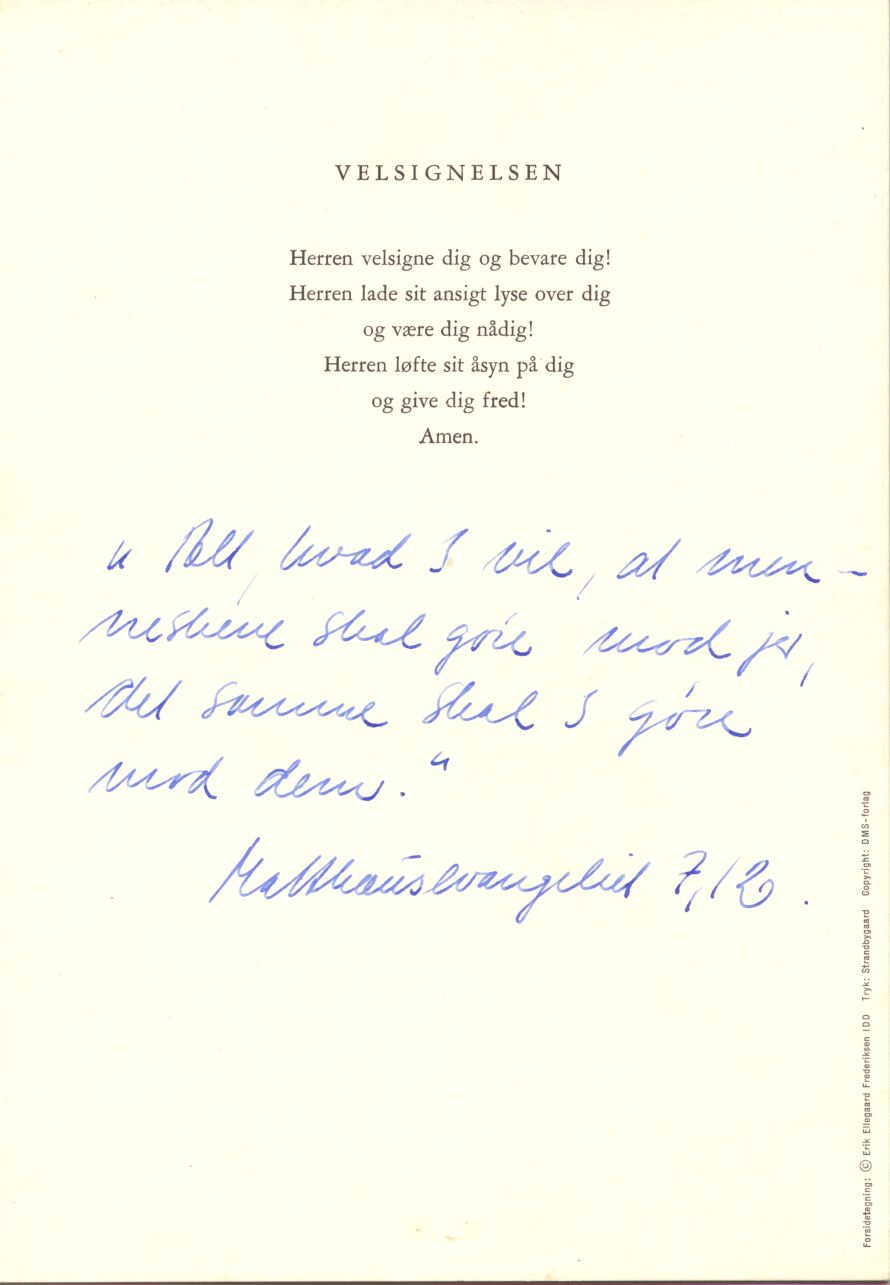 VELSIGNELSEN
Herren velsigne dig og bevare dig!
Herren lade sit ansigt lyse over dig
og være dig nådig!
Herren løfte sit åsyn på dig
og give dig fred!
Amen.
„ Alt, hvad I vil, at men-
neskene skal gøre mod jer,
det samme skal I gøre
mod dem.“
Matthæusevangeliet 7,12.
Forsidetegning: © Erik Ellegaard Frederiksen IDD Tryk: Strandbygaard Copyright: DMS-forlag